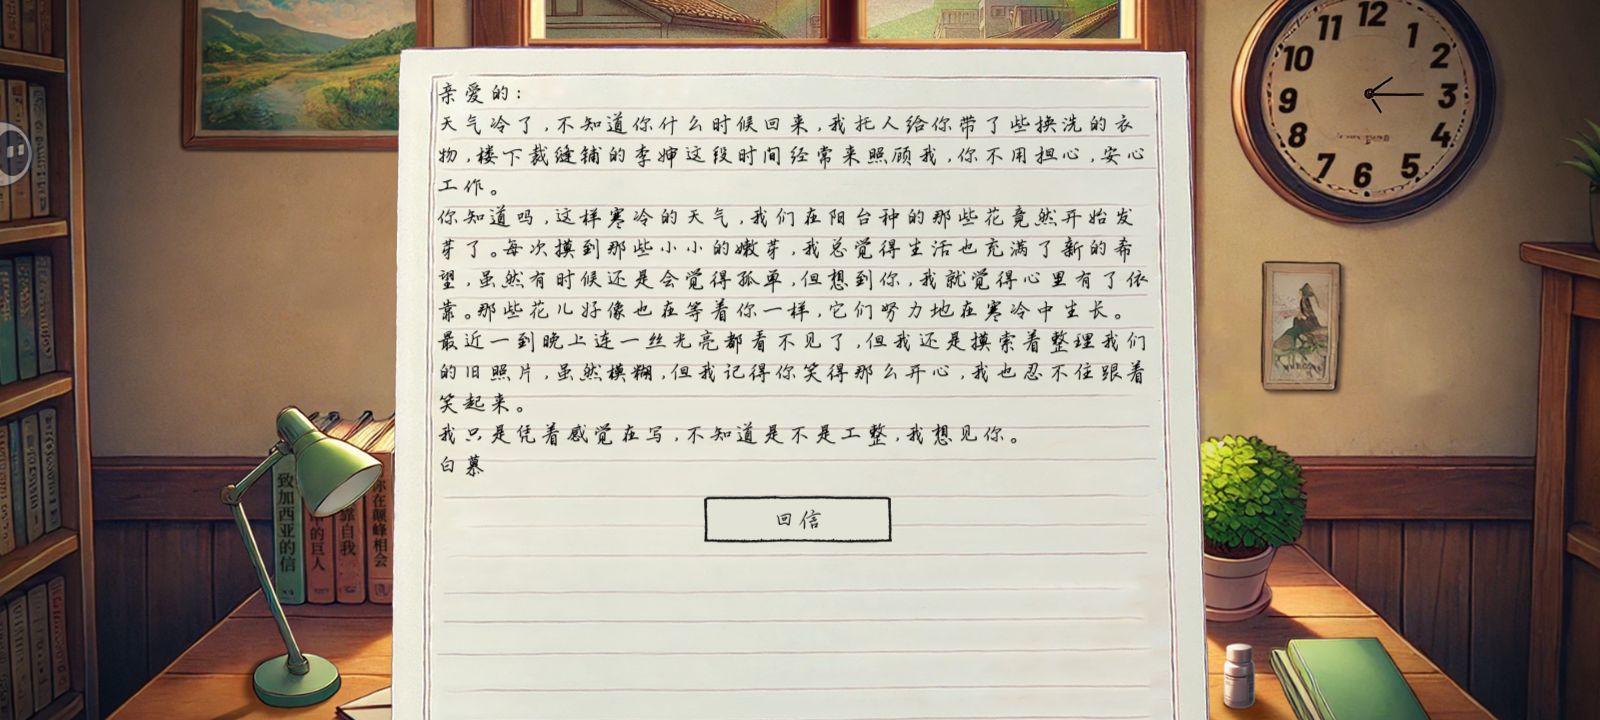 亲爱的：
天气冷了，不知道你什么时候回来，我托人给你带了些换洗的衣
物，楼下裁缝铺的李婶这段时间经常来照顾我，你不用担心，安心
工作。
你知道吗，这样寒冷的天气，我们在阳台种的那些花竟然开始发
芽了。每次摸到那些小小的嫩芽，我总觉得生活也充满了新的希
望，虽然有时候还是会觉得孤单，但想到你，我就觉得心里有了依
靠。那些花儿好像也在等着你一样，它们努力地在寒冷中生长。
最近一到晚上连一丝光亮都看不见了，但我还是摸索着整理我们
的旧照片，虽然模糊，但我记得你笑得那么开心，我也忍不住跟着
笑起来。
我只是凭着感觉在写，不知道是不是工整，我想见你。
白慕
回信
致加西亚的信
的巨人
靠自我
你在巅峰相会
12
1
2
3
4
5
6
7
8
9
10
11